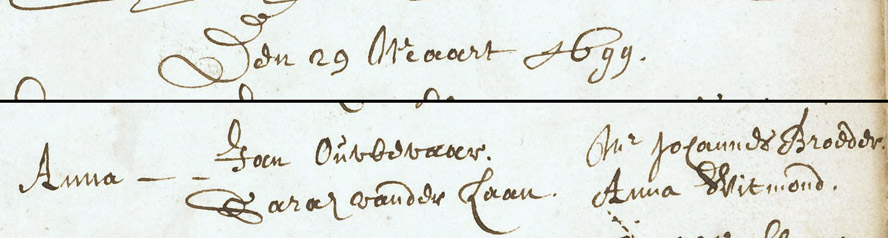 Den 29 Maart 1699.
Anna - - Jan Ouvbevaar. Mr Johannes Broeder.
Sarah vander Laan. Anna Witmond.